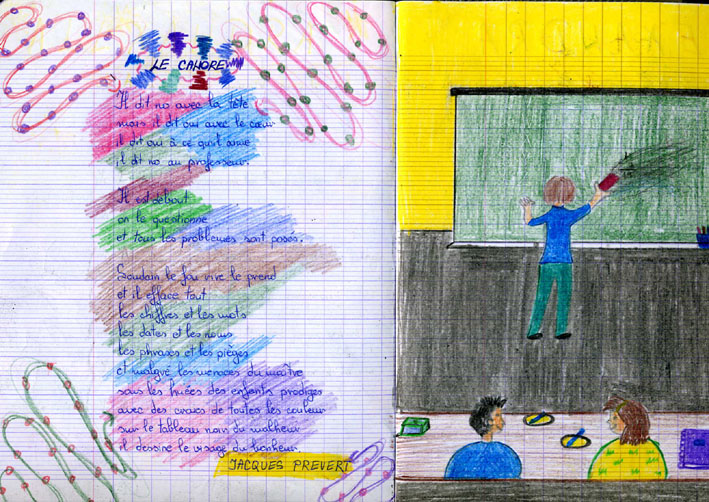 LE CANCRE
Il dit no avec la tête
mais il dit oui avec le cœur
il dit oui à ce qu'il aime
il dit no au professeur.
Il est debout
on le questionne
et tous les problèmes sont posés.
Soudain le fou vive le prend
et il efface tout
les chiffres et les mots
les dates et les noms
les phrases et les pièges
et malgré les menaces du maître
sous les huées des enfants prodiges
avec des craies de toutes les couleur
sur le tableau noir du malheur
il dessine le visage du bonheur.
JACQUES PREVERT